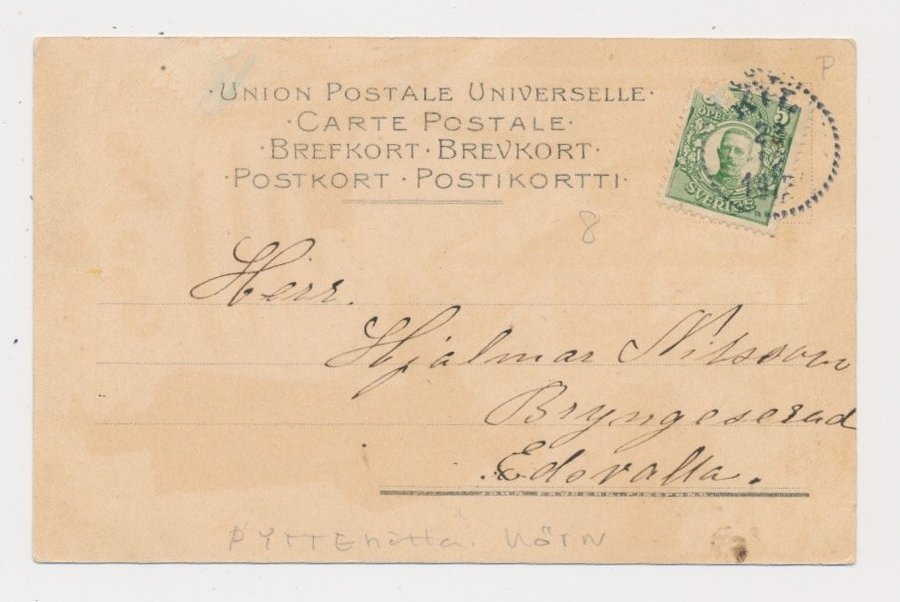 ·UNION POSTALE UNIVERSELLE·
·CARTE POSTALE·
·BREFKORT·BREVKORT·
·POSTKORT·POSTIKORTTI·
P
5
ÖRE
SVERIGE
23
8
Herr.
Hjalmar Nilsson
Bryngeserud
Edsvalla.